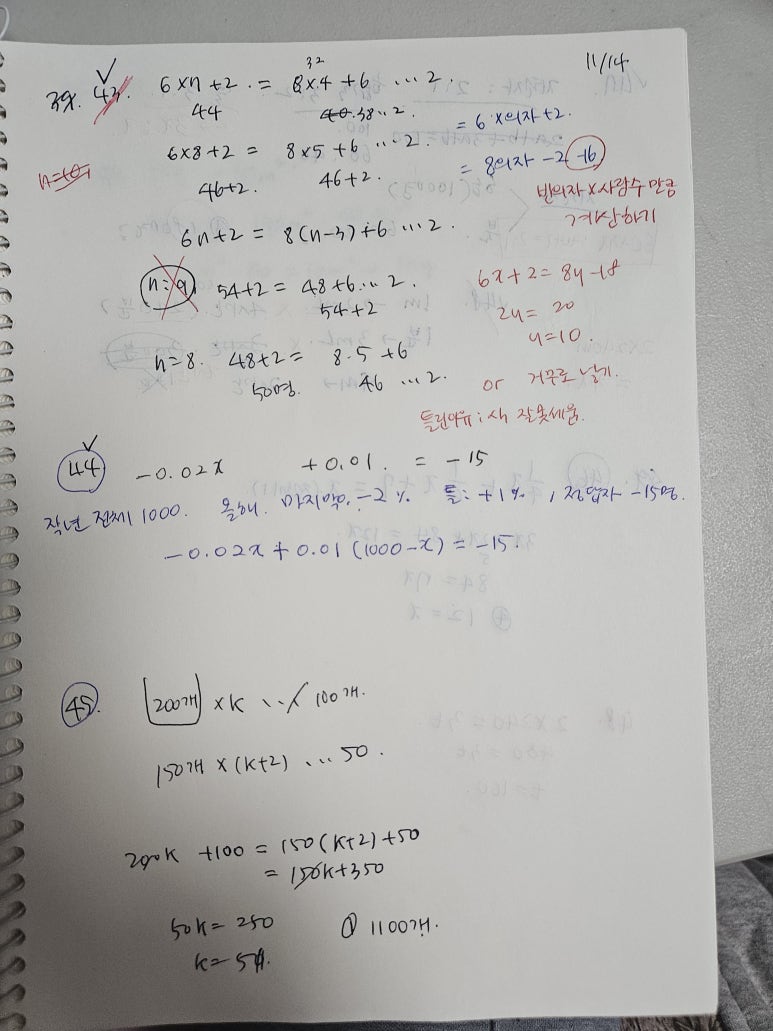 11/14
39. 43. 6×n+2 = 8×4+6 … 2.
32
44 40.38 … 2. = 6×의자+2.
6×8+2 = 8×5+6 … 2. = 8의자-2-16
n=10,
46+2. 46+2. 반의자×사람수만큼
계산하기
6n+2 = 8(n-3)+6 … 2.
n=9 54+2 = 48+6 … 2. 6x+2=8y-18
54+2 2y= 20
y=10.
n=8. 48+2 = 8·5+6
50명. 46 … 2. or 거꾸로 날기.
틀린이유: 식 잘못세움.
44 -0.02x +0.01. = -15
작년 전체 1000. 올해. 마지막. -2% 틀: +1%, 정답자 -15명.
-0.02x+0.01(1000-x)=-15.
45. 200개 ×k … 100개.
150개×(k+2) … 50.
200k +100 = 150(k+2)+50
= 150k+350
50k= 250 ① 1100개.
k=5